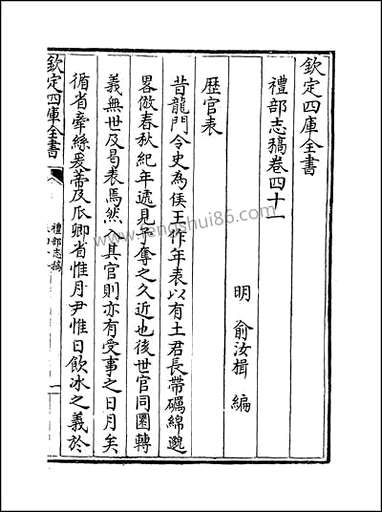 欽定四庫全書
禮部志稿卷四十一
明 俞汝楫 編
歴官表
昔龍門令史為侯王作年表以有土君長帶礪綿邈
畧倣春秋紀年遞見予奪之久近也後世官同圜轉
義無世及曷表焉然入其官則亦有受事之日月矣
循省牽絲爰蒂及瓜卿省惟月尹惟日飲冰之義於
欽定四庫全書
禮部志稿
一
www.fengshui86.com